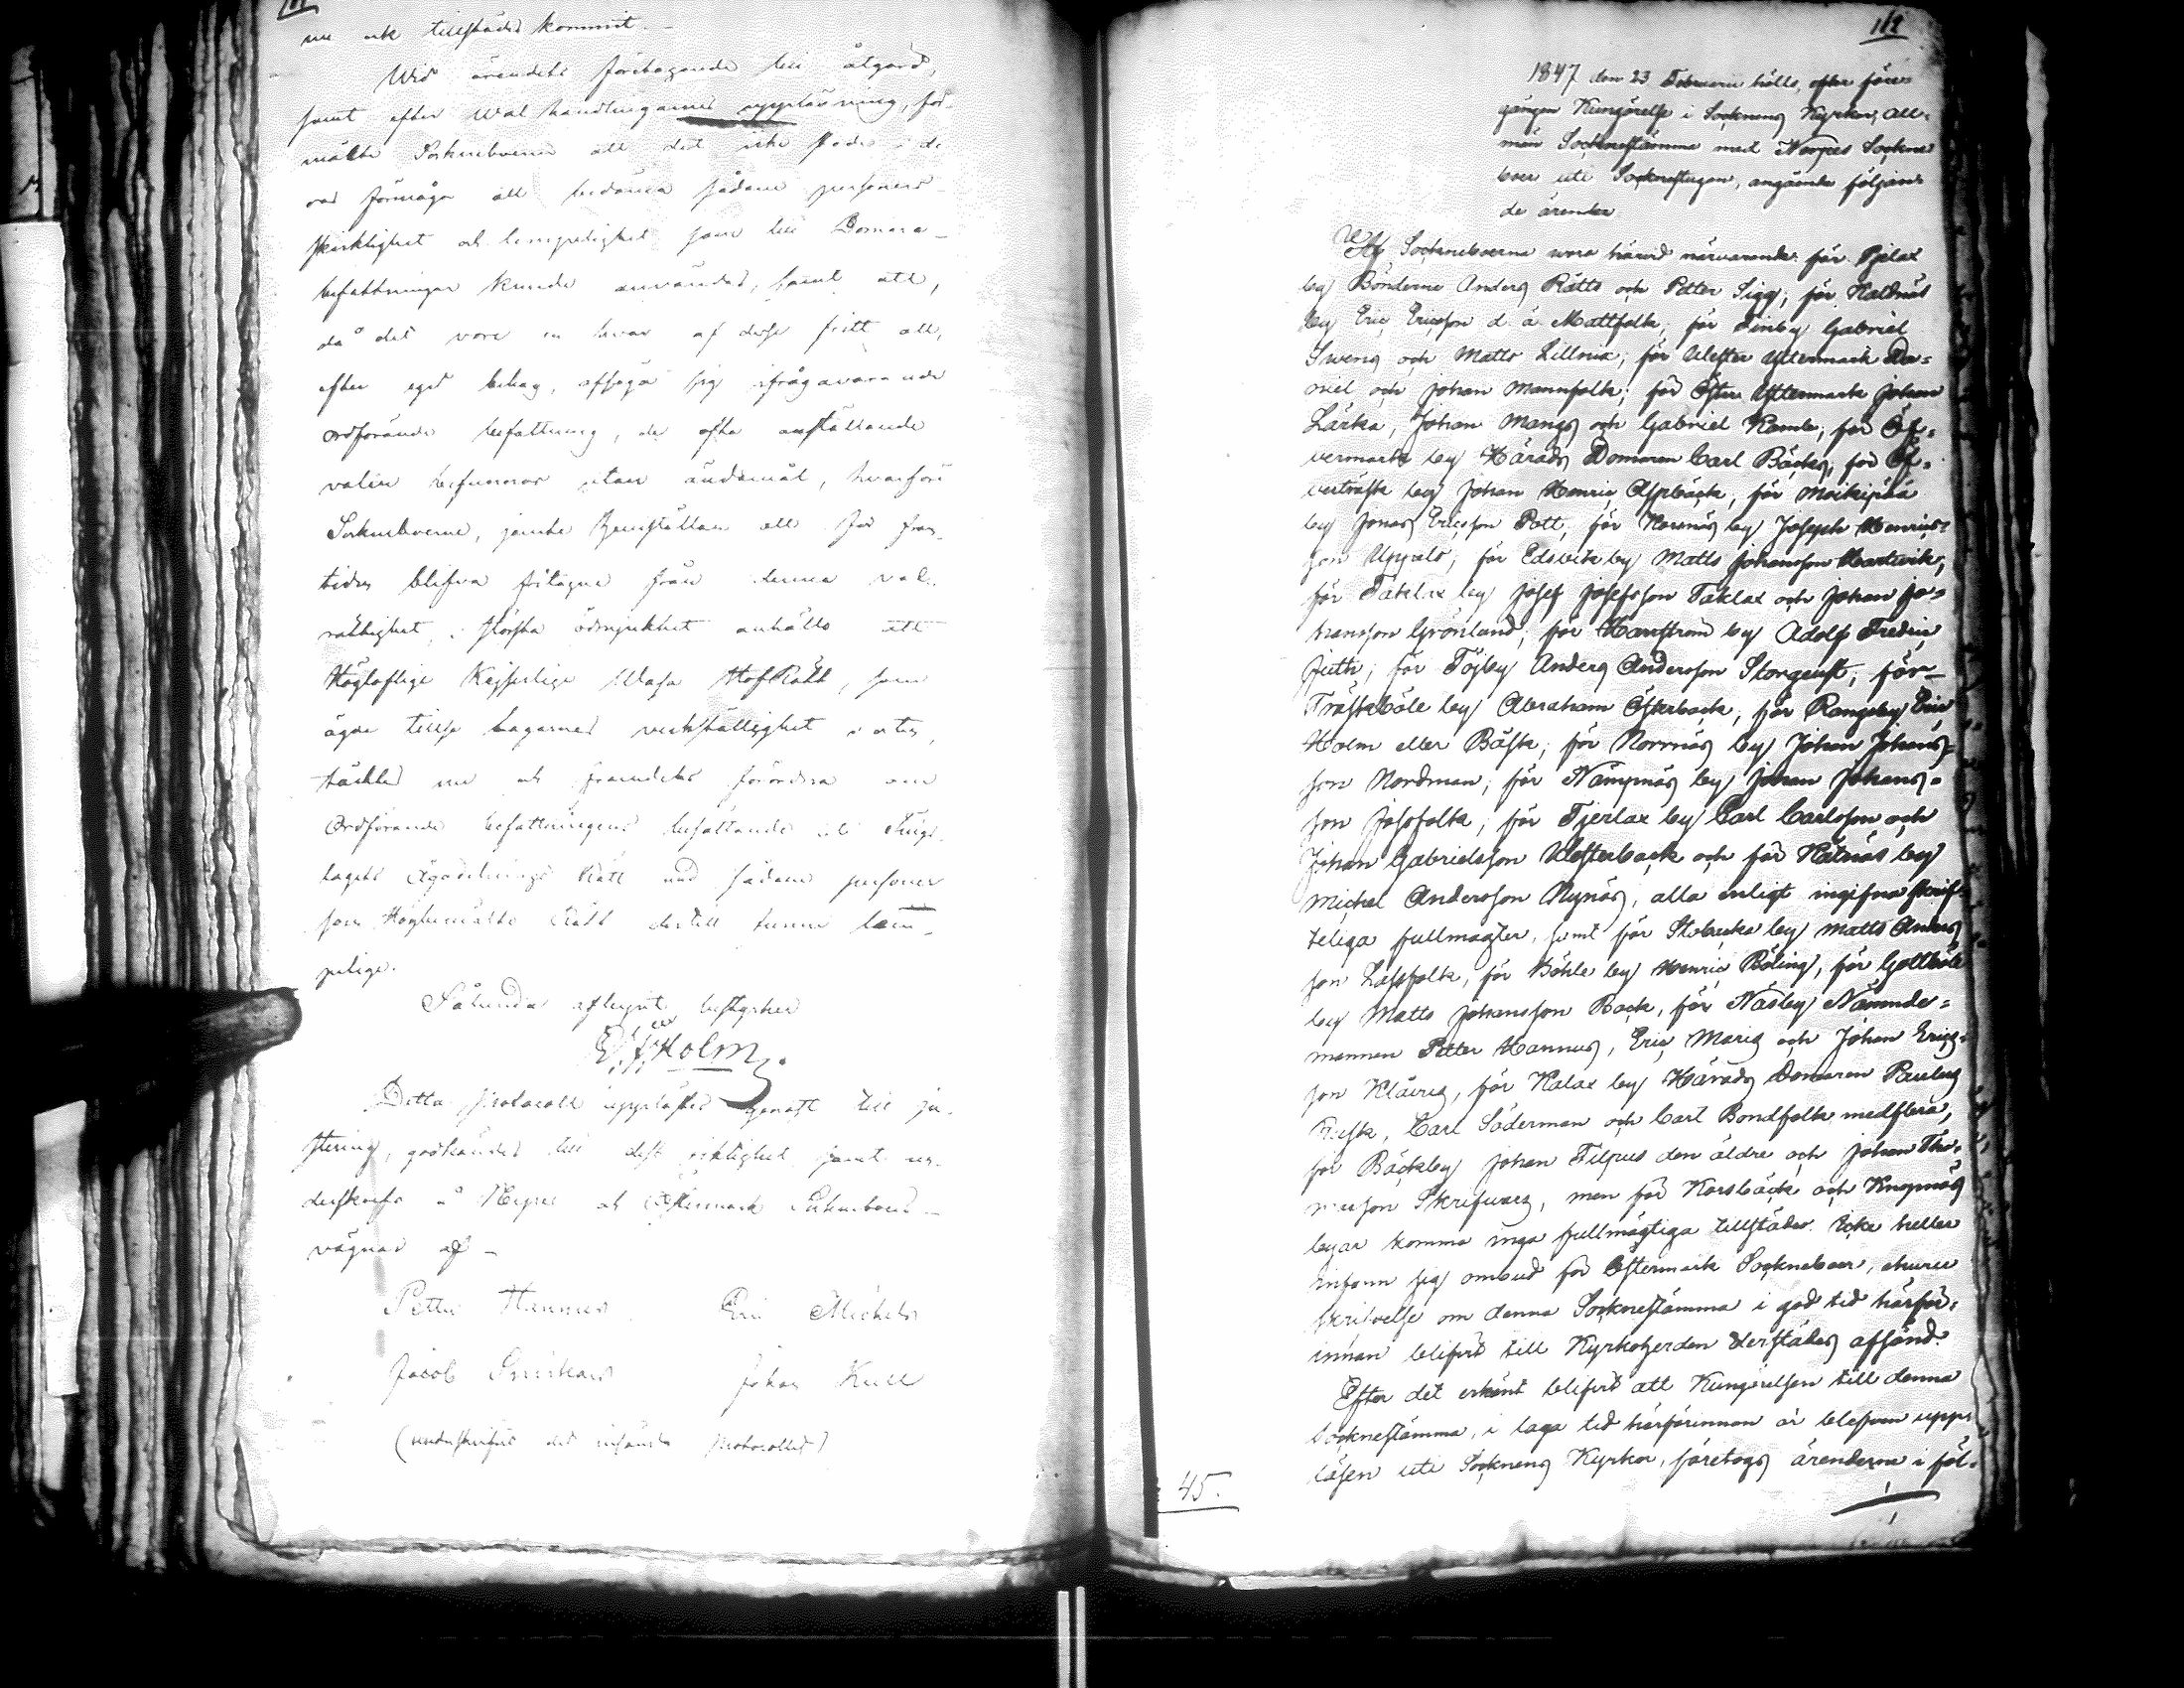 nu ock tillstädes kommit. –
Wid ärendets företagande till åtgärd,
samt efter Wal handlingarnes uppläsning, för-
mälte Sockneboerne att det icke stode i de-
ras förmåga att bedöma sådane personers
skicklighet och lämpelighet som till Domare-
befattningar kunde användas, samt att,
då det vore en hvar af desse fritt att,
efter eget behag, afsäga sig ifrågavarande
ordförande befattning, de ofta anställande
valen befunnos utan ändamål, hvarföre
Sockneboerne, jemte hemställan att för fram-
tiden blifva fritagne från denna val-
rättighet, i största ödmjukhet anhöllo att
Högloflige Kejserlige Wasa HofRätt, som
ägde tillse lagarnes verkställighet i orten,
täcktes nu och framdeles förordna om
Ordförande befattningens besättande uti Tings-
lagets Ägodelnings Rätt med sådane personer
som Högbemälte Rätt dertill funne läm-
pelige.
Sålunda aflupit bestyrker
Holm.
Detta Protocoll upplästes genast till ju-
stering, godkändes till dess riktighet samt un-
derskrefs å Nerpes och Östermark Sockneboers
vägnar af –
Petter Hannus Eric Michels
Jacob Johan Kull
(underskrifvit det insända Protocollet)
112
1847 den 23 Februarii hölls, efter före-
gången Kungörelse i Socknens Kyrkor, all-
män Socknestämma med Nerpes Sockne
boer uti Socknestugan, angående följan-
de ärender.
Af Sockneboerna woro härvid närvarande: för Pjelax
by Bönderne Anders Rätts och Petter Sigg; för Kaldnäs
by Eric Ericsson d. ä. Mattfolk; för Finby Gabriel
Swens och Matts Lillsia; för Wester Yttermark Da-
niel och Johan Mannfolk; för Öster Yttermark Johan
Lärka, Johan Mangs och Gabriel Ramb; för Öf-
vermark by Härads Domaren Carl Bäcks; för Öf-
verträsk by Johan Henric Aspbäck, för Moikipää
by Jonas Ericsson Pott; för Korsnäs by Joseph Henrics-
son Uppals; för Edsvik by Matts Johansson Hartvik,
för Taklax by Josef Josefsson Taklax och Johan Jo-
hansson Grönland; för Harrström by Adolf Fredric
Juth; för Töjby Anders Andersson Storgeust; för
Träskböle by Abraham Österback; för Rangsby Eric
Holm eller Bäsk; för Norrnäs by Johan Johans-
son Nordman; för Nämpnäs by Johan Johans-
son Josofolk; för Tjerlax by Carl Carlsson och
Johan Gabrielsson Westerback och för Kåtnäs by
Michel Andersson Nynäs, alla enligt ingifna skrif-
teliga fullmagter, samt för Stobacka by Matts Anders
son Lassfolk, för Böhle by Henric Böling, för Gottböle
by Matts Johansson Back, för Näsby Nämnde-
mannen Petter Hannus, Eric Marig och Johan Erics-
son Klåvus, för Kalax by Härads Domaren Paulus
Rusk, Carl Söderman och Carl Bondfolk medflera,
för Bäckby Johan Filpus den äldre och Johan Tho-
masson Skrifvars, men för Korsbäck och Knapnäs
byar komma inga fullmägtiga tillstädes. Icke heller
infann sig ombud för Östermark Sockneboer, ehuru
skrivelse om denna Socknestämma i god tid härför-
innan blifvit till Kyrkoherden derstädes afsänd.
Efter det erkänt blifvit att Kungörelsen till denna
Socknestämma, i laga tid härförinnan är blefven upp-
läsen uti Socknens Kyrkor, företogs ärenderne i föl-
45.